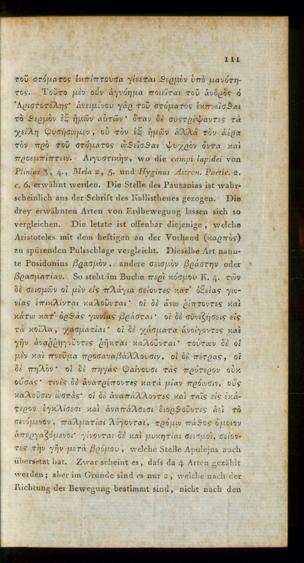 111
τοῦ στόματος ἐκπίπτουσα γίνεται θερμὸν ὑπὸ μανότη-
τος. Τοῦτο μὲν οὖν ἀγνόημα ποιεῖται τοῦ ἀνδρὸς ὁ
Ἀριστοτέλης· ἀνειμένου γάρ τοῦ στόματος ἐκπνεῖσθαι
τὸ θερμὸν ἐξ ἡμῶν αὐτῶν· ὅταν δὲ συστρέψαντες τὰ
χείλη φυσήσωμεν, οὐ τὸν ἐξ ἡμῶν ἀλλὰ τὸν ἀέρα
τὸν πρὸ τοῦ στόματος ὠθεῖσθαι ψυχρὸν ὄντα καὶ
προεμπίπτειν. Λιγυστικὴν, wo die campi lapidei von
Plinius 3, 4., Mela 2, 5. und Hyginus Astron. Poetic. 2.
c. 6. erwähnt werden. Die Stelle des Pausanias ist wahr-
scheinlich aus der Schrift des Kallisthenes gezogen. Die
drey erwähnten Arten von Erdbewegung lassen sich so
vergleichen. Die letzte ist offenbar diejenige, welche
Aristoteles mit dem heftigen an der Vorhand (καρπὸς)
zu spürenden Pulsschlage vergleicht. Dieselbe Art nann-
te Posidonius βρασμὸν, andere σεισμὸν βράστην oder
βρασματίαν. So steht im Buche περὶ κόσμου K. 4. τῶν
δὲ σεισμῶν οἱ μὲν εἰς πλάγια σείοντες κατ' ὀξείας γω-
νίας ἐπικλίνται καλοῦνται· οἱ δὲ ἄνω ῥίπτοντες καὶ
κάτω κατ' ὀρθὰς γωνίας βράσται· οἱ δὲ συνιζήσεις εἰς
τὰ κοῖλα, χασματίαι· οἱ δὲ χάσματα ἀνοίγοντες καὶ
γῆν ἀναῤῥηγνῦντες ῥῆκται καλοῦνται· τούτων δὲ οἱ
μὲν καὶ πνεῦμα προσαναβάλλουσιν, οἱ δὲ πέτρας, οἱ
δὲ πηλὸν· οἱ δὲ πηγὰς φαίνουσι τὰς πρότερον οὐκ
οὔσας· τινὲς δὲ ἀνατρέποντες κατὰ μίαν πρόωσιν, οὓς
καλοῦσιν ὤστας· οἱ δὲ ἀναπάλλοντες καὶ ταῖς εἰς ἑκά-
τερον ἐγκλίσεσι καὶ ἀναπάλσεσι διορθοῦντες ἀεὶ τὸ
σειόμενον, παλματίαι λέγονται, τρόμῳ πάθος ὅμοιον
ἀπεργαζόμενοι· γίνονται δὲ καὶ μυκητίαι σεισμοὶ, σείον-
τες τὴν γῆν μετὰ βρόμου, welche Stelle Apulejus auch
übersetzt hat. Zwar scheint es, daſs da 4 Arten gezählt
werden; aber im Grunde sind es nur 2, welche nach der
Richtung der Bewegung bestimmt sind, nicht nach den